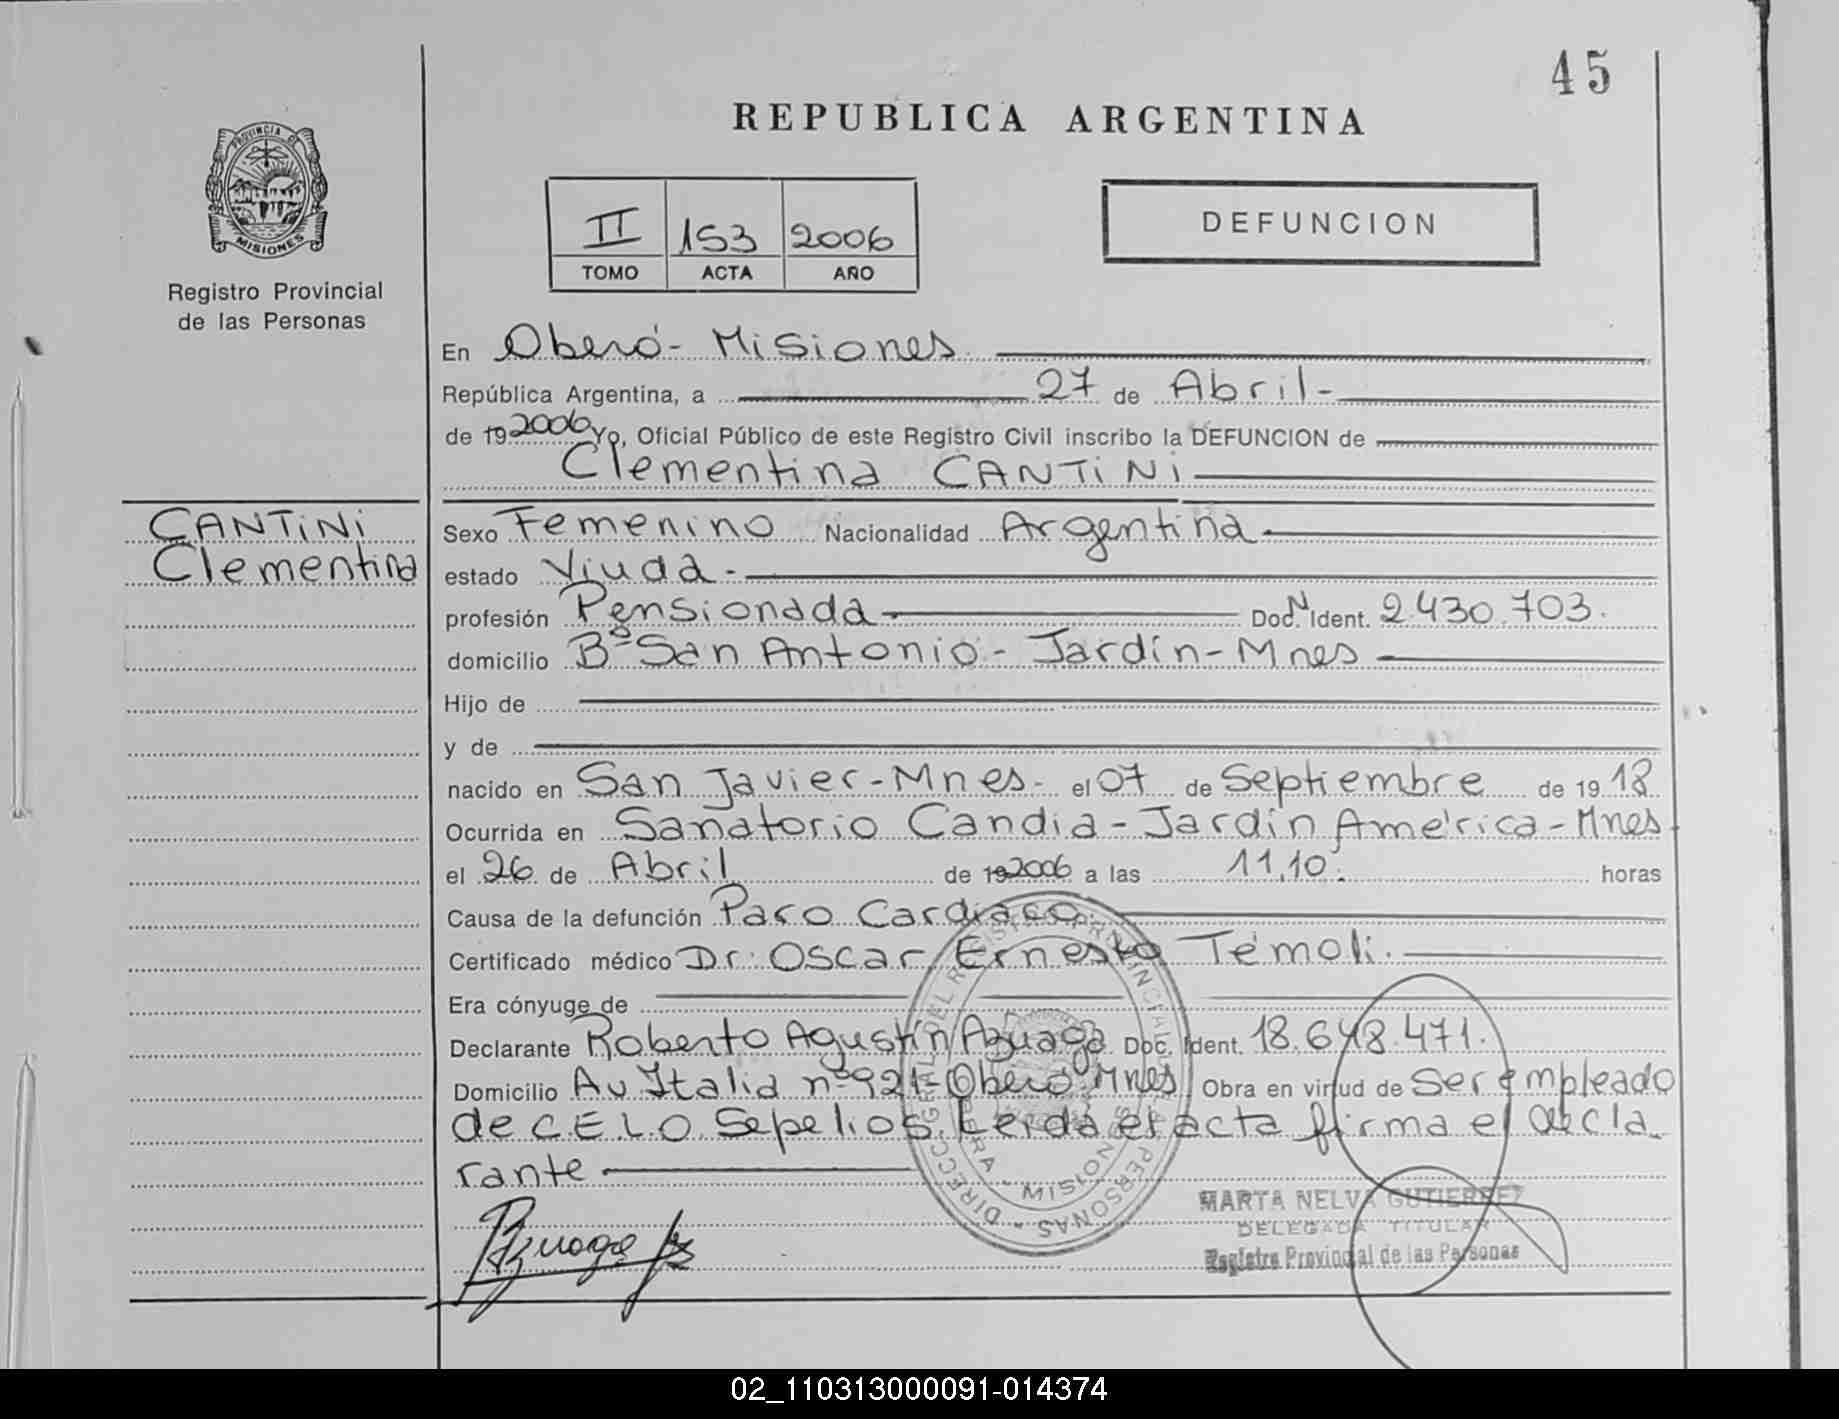 45
REPUBLICA ARGENTINA
PROVINCIA DE
MISIONES
Registro Provincial
de las Personas
II 153 2006
TOMO ACTA AÑO
DEFUNCION
En Oberá- Misiones
República Argentina, a 27 de Abril-
de 19 2006 Yo, Oficial Público de este Registro Civil inscribo la DEFUNCION de
Clementina CANTiNi
CANTiNi
Clementina
Sexo Femenino Nacionalidad Argentina
estado Viuda-
profesión Pensionada Doc. N Ident. 2.430.703.
domicilio Bº San Antonio- Jardín-Mnes
Hijo de
y de
nacido en San Javier-Mnes- el 07 de Septiembre de 19 18
Ocurrida en Sanatorio Candia-Jardín América-Mnes
el 26 de Abril de 19 2006 a las 11,10. horas
Causa de la defunción Paro Cardiaco.
Certificado médico Dr. Oscar Ernesto Témoli.
Era cónyuge de
Declarante Roberto Agustín Azuaga Doc. Ident. 18.648.471.
Domicilio Av Italia nº 921-Oberá Mnes Obra en virtud de Ser empleado
de C.E.L.O Sepelios. Leída el acta firma el decla
rante
Azuaga
MARTA NELVA GUTIERREZ
DELEGADA TITULAR
Registro Provincial de las Personas
02_110313000091-014374